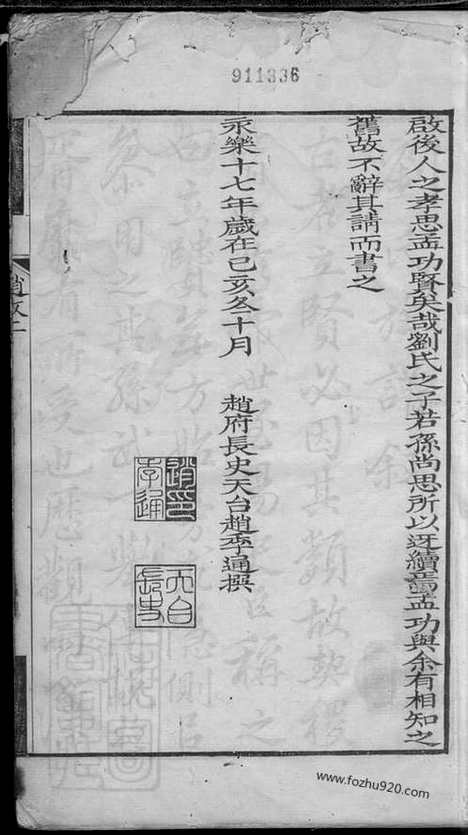 911336
啟後人之孝思孟功賢矣哉劉氏之子若孫尚思所以迓續焉孟功與余有相知之
舊故不辭其請而書之
永樂十七年歲在己亥冬十月 趙府長史天台趙季通撰
趙氏季通
天台長史
趙文二
www.fozhu920.com